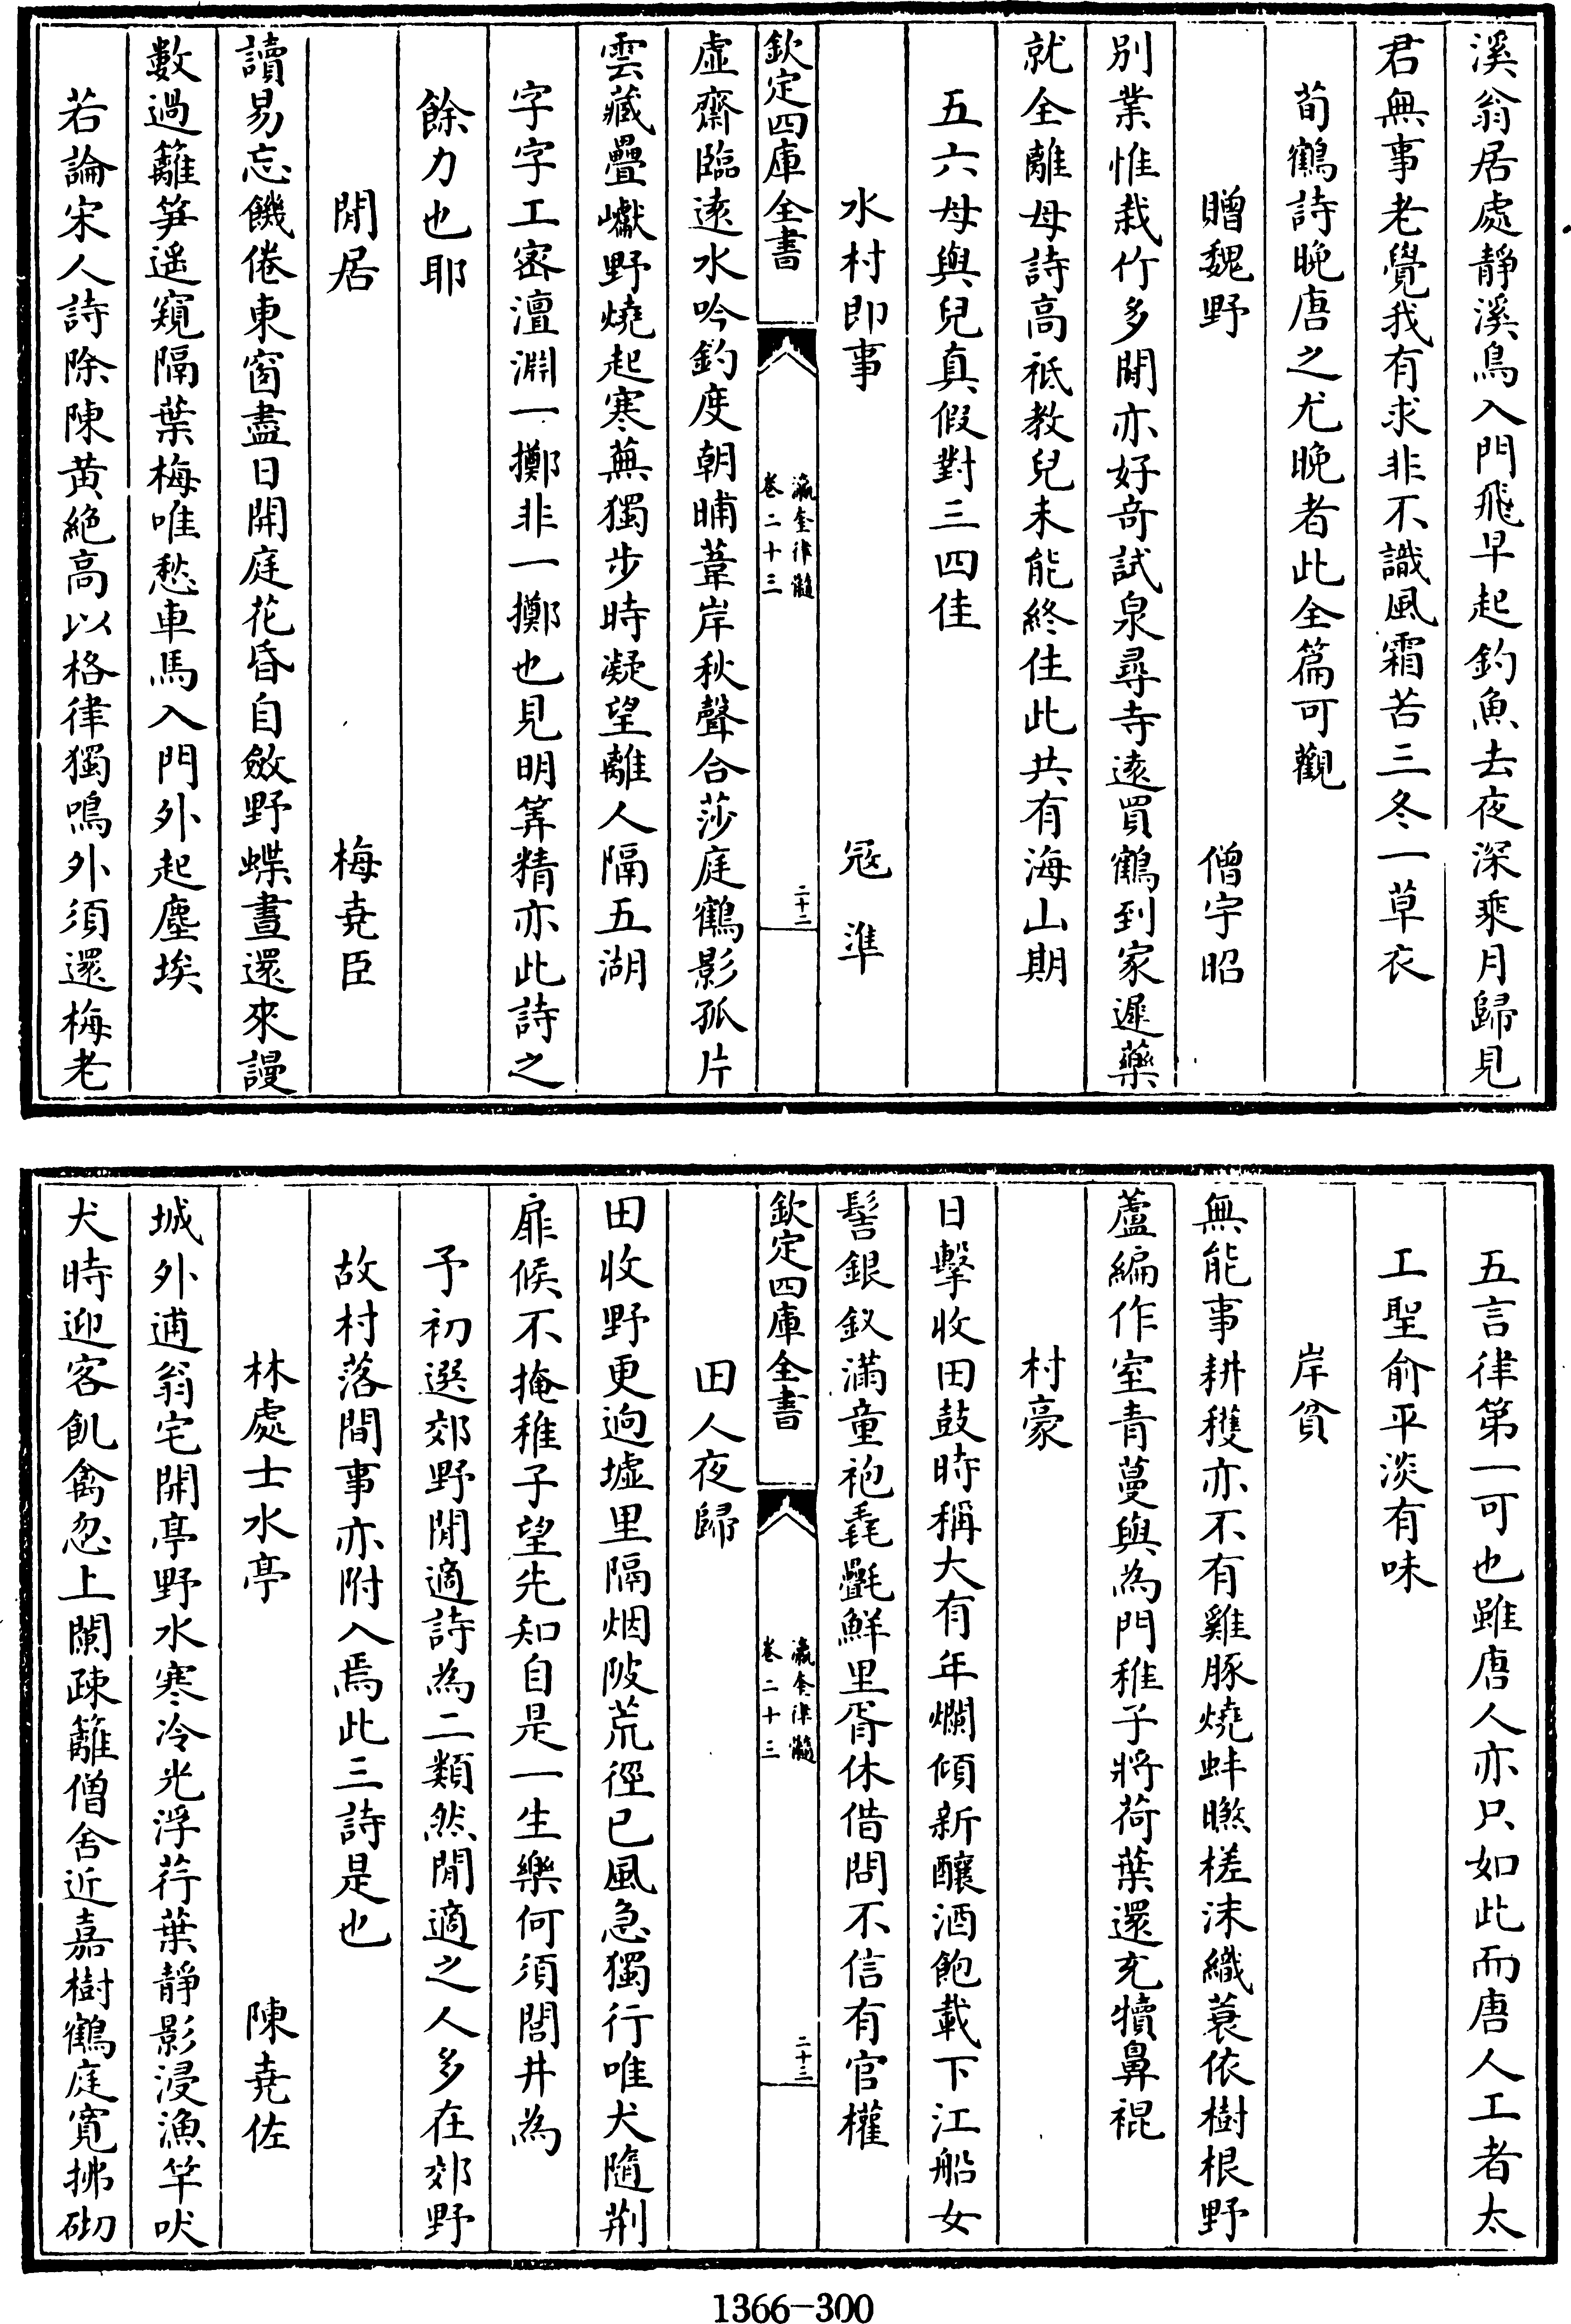 溪翁居處靜溪鳥入門飛早起釣魚去夜深乘月歸見
君無事老覺我有求非不識風霜苦三冬一草衣
荀鶴詩晚唐之尤晚者此全篇可觀
贈魏野 僧宇昭
别業惟栽竹多閒亦好竒試泉尋寺逺買鶴到家遲藥
就全離母詩髙祇教兒未能終住此共有海山期
五六母與兒真假對三四佳
水村即事 冦凖
欽定四庫全書
瀛奎律髓
卷二十三
二十二
虛齋臨逺水吟釣度朝晡葦岸秋聲合莎庭鶴影孤片
雲藏疊巘野燒起寒蕪獨步時凝望離人隔五湖
字字工密澶淵一擲非一擲也見明筭精亦此詩之
餘力也耶
閒居 梅堯臣
讀易忘饑倦東窗盡日開庭花昏自斂野蝶晝還來謾
數過籬笋遥窺隔葉梅唯愁車馬入門外起塵埃
若論宋人詩除陳黄絶髙以格律獨鳴外須還梅老
五言律第一可也雖唐人亦只如此而唐人工者太
工聖俞平淡有味
岸貧
無能事耕穫亦不有雞豚燒蚌曬槎沫織蓑依樹根野
蘆編作室青蔓與為門稚子將荷葉還充犢鼻裩
村豪
日擊收田鼓時稱大有年爛傾新釀酒飽載下江船女
髻銀釵滿童袍毳氎鮮里胥休借問不信有官權
欽定四庫全書
瀛奎律髓
卷二十三
二十三
田人夜歸
田收野更迥墟里隔烟陂荒徑已風急獨行唯犬隨荆
扉候不掩稚子望先知自是一生樂何須閭井為
予初選郊野閒適詩為二類然閒適之人多在郊野
故村落間事亦附入焉此三詩是也
林處士水亭 陳堯佐
城外逋翁宅開亭野水寒冷光浮荇葉靜影浸漁竿吠
犬時迎客飢禽忽上闌疎籬僧舍近嘉樹鶴庭寛拂砌
1366-300